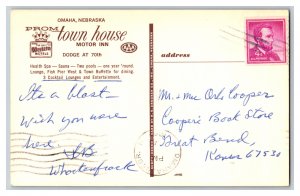 OMAHA, NEBRASKA
PROM
town house
MOTOR INN
Western
MOTELS
AAA
DODGE AT 70th
Health Spa — Sauna — Two pools — one year 'round.
Lounge, Fish Pier West & Town Buffette for dining.
3 Cocktail Lounges and Entertainment.
address
Its a blast —
Wish you were
here.
Mr. + Mrs Orls Cooper
Cooper's Book Store
Great Bend,
Kans 67530